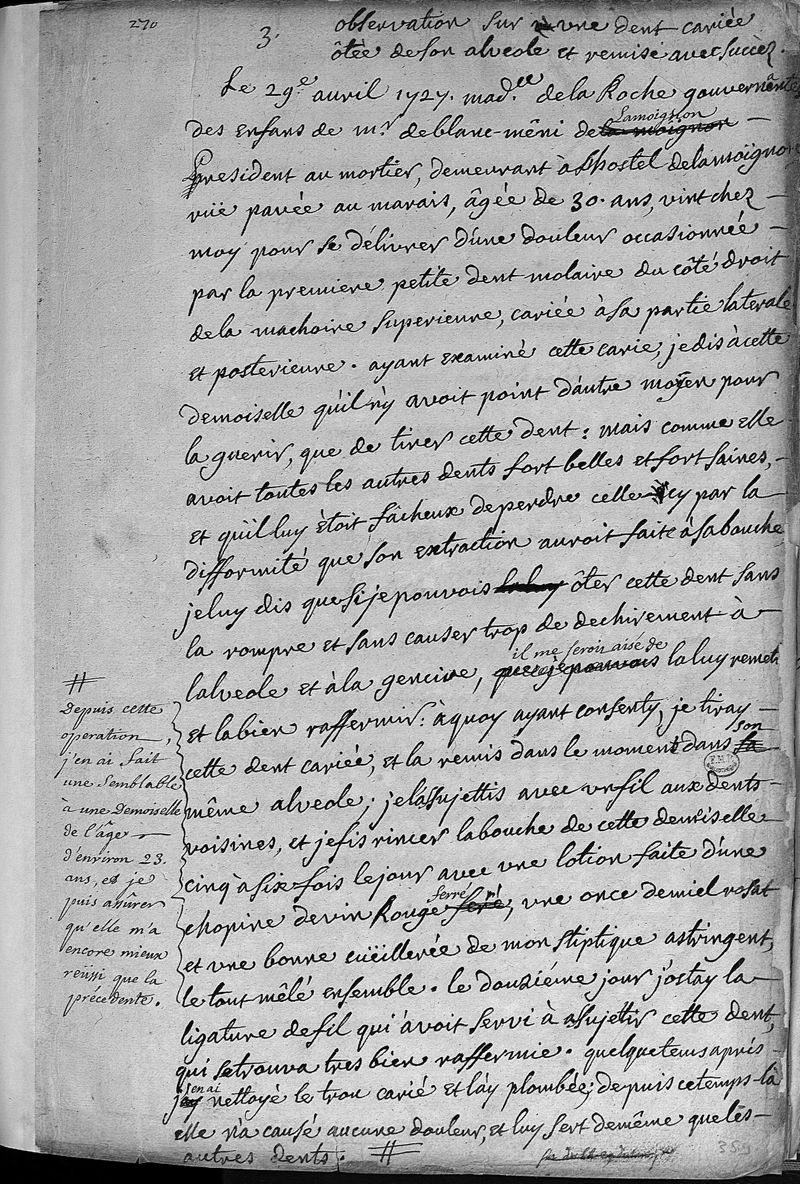 270
3. observation sur une dent cariée
ôtée de son alveole et remise avec succèz.
Le 29.e avril 1727. mad.lle de la Roche gouvernante
des enfans de mr. deblanc-mêni de Lamoignon
President au mortier, demeurant à l'hostel delamoignon
ruë pavée au marais, âgée de 30. ans, vint chez
moy pour se délivrer d'une douleur occasionnée
par la premiere petite dent molaire du côté droit
dela machoire superieure, cariée à sa partie laterale
et posterieure. ayant examiné cette carie, je dis à cette
demoiselle qu'il n'y avoit point d'autre moyen pour
la guerir, que de tirer cette dent: mais comme elle
avoit toutes les autres dents fort belles et fort saines,
et qu'il luy êtoit fâcheux deperdre celle cy par la
difformité que son extraction auroit faite à sa bouche
je luy dis que si je pouvois ôter cette dent sans
la rompre et sans causer trop de dechirement à
lalveole et à la gencive, il me seroit aisé de la luy remett
et la bien raffermir: à quoy ayant consenty, je tiray
cette dent cariée, et la remis dans le moment dans son
même alveole; je l'assujettis avec un fil aux dents
voisines, et je fis rincer la bouche de cette demiselle
cinq à six fois le jour avec une lotion faite d'une
chopine de vin Rouge ferré, une once de miel rosat
et une bonne cuëillerée de mon stiptique astringent,
le tout mêlé ensemble. le douziéme jour j'ostay la
ligature de fil qui avoit servi à asujettir cette dent,
qui se trouva tres bien raffermie. quelque tems après
j'en ai nettoyé le trou carié et l'ay plombée; depuis ce temps-là
elle n'a causé aucune douleur, et luy sert de même que les
autres dents. #
#
Depuis cette
operation,
j'en ai fait
une semblable
à une Demoiselle
de l'âge
d'environ 23.
ans, et je
puis assurer
qu'elle m'a
encore mieux
reüssi que la
précedente.